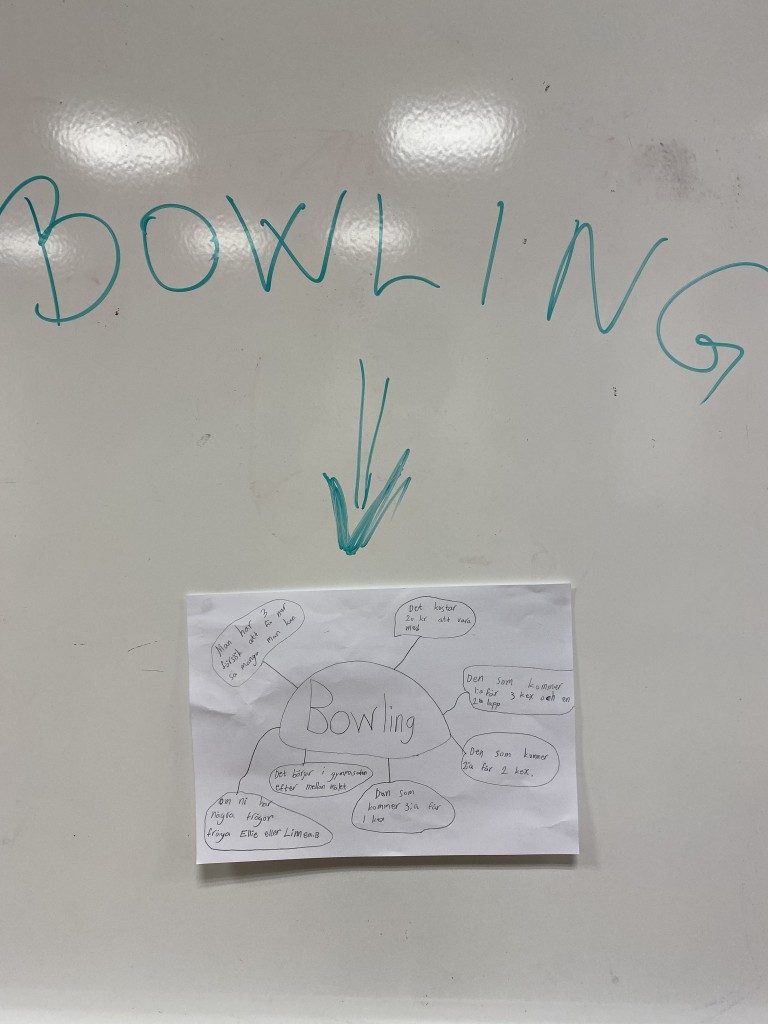 BOWLING
Man har 3
försök att få ner
så många man kan
Det kostar
20 kr att vara
med
Bowling
Den som kommer
1:a får 3 kex och en
lapp
Den som kommer
2:a får 2 kex.
Det börjar i gymnasalen
efter mellan målet
Den som
kommer 3:a får
1 kex
om ni har
några frågor
fråga Ellie eller Linnea.B